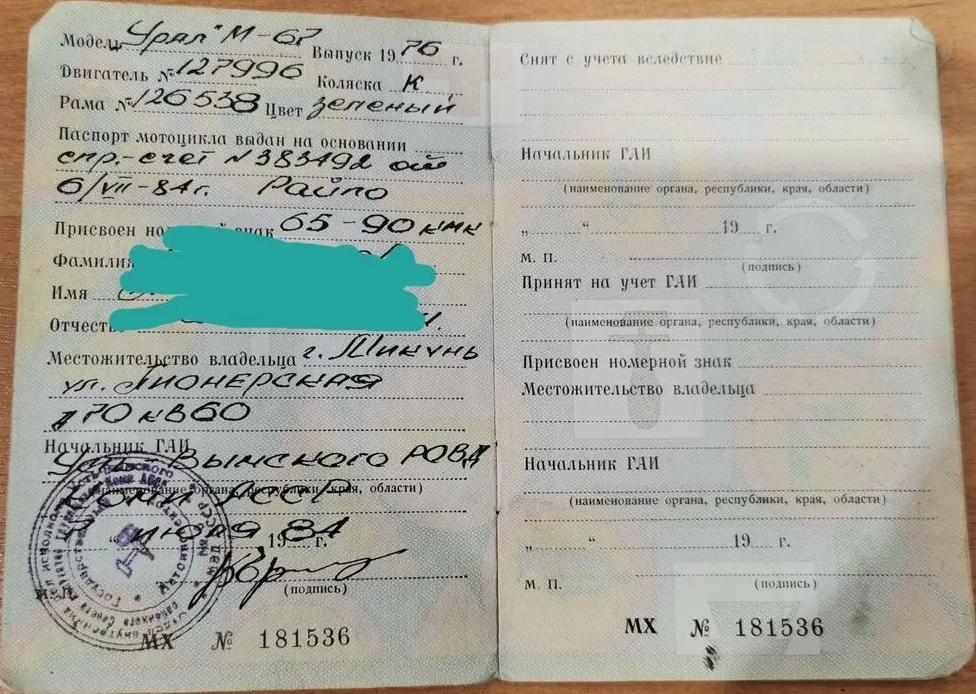 Модель "Урал" М-67 Выпуск 1976 г.
Двигатель № 127996 Коляска К
Рама № 126538 Цвет зеленый
Паспорт мотоцикла выдан на основании
спр.-счет N383492 от
6/VII-84г. Райпо
Присвоен знак 65-90 кмк
Фамилия
Имя
Отчест
Местожительство владельца г. Микунь
ул. Пионерская
д 70 кв 60
Начальник ГАИ
Усть-Вымского РОВД
(наименование органа, республики, края, области)
Коми АССР
" июля 1984 г.
(подпись)
МХ № 181536
Снят с учета вследствие
Начальник ГАИ
(наименование органа, республики, края, области)
„ “ 19 г.
М. П.
(подпись)
Принят на учет ГАИ
(наименование органа, республики, края, области)
Присвоен номерной знак
Местожительство владельца
Начальник ГАИ
(наименование органа, республики, края, области)
„ “ 19 г.
М. П.
(подпись)
МХ № 181536